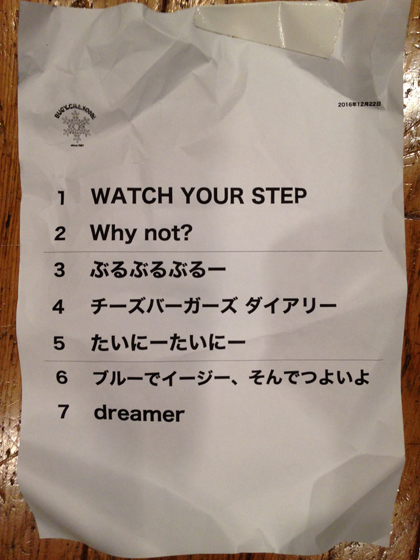 2016年12月22日
1 WATCH YOUR STEP
2 Why not?
3 ぶるぶるぶるー
4 チーズバーガーズ ダイアリー
5 たいにーたいにー
6 ブルーでイージー、そんでつよいよ
7 dreamer